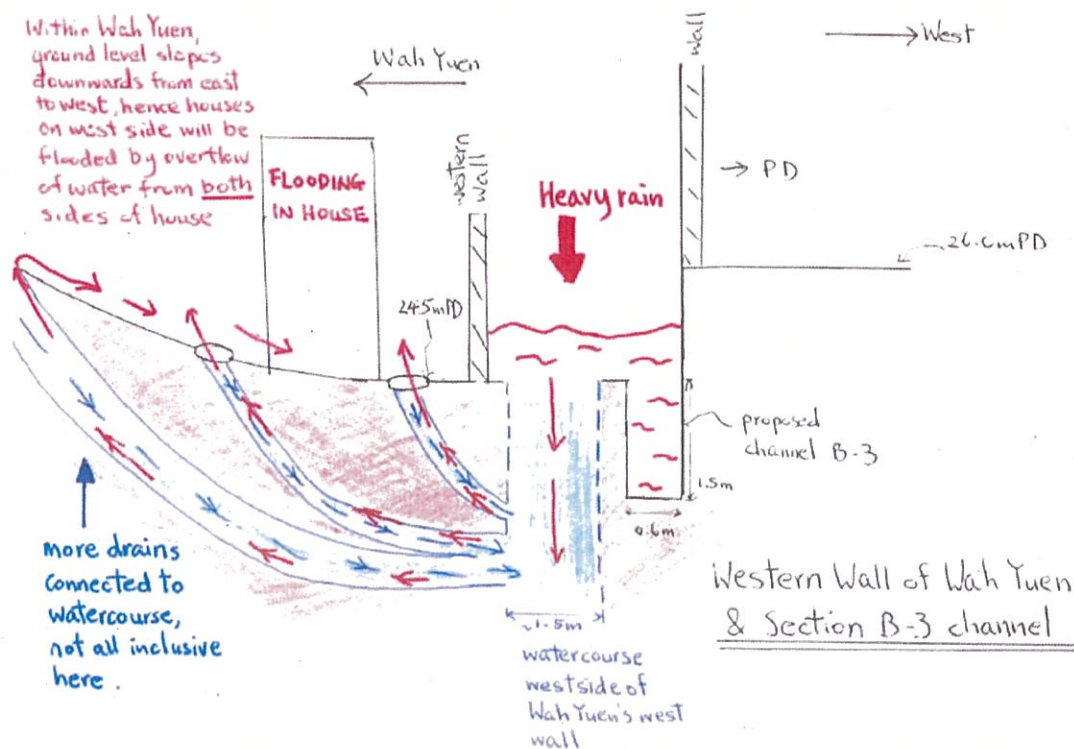 Within Wah Yuen,
ground level slopes
downwards from east
to west, hence houses
on west side will be
flooded by overflow
of water from both
sides of house
Wah Yuen
Wall
West
FLOODING
IN HOUSE
western
Wall
Heavy rain
PD
26.0mPD
24.5mPD
proposed
channel B-3
1.5m
0.6m
more drains
connected to
watercourse,
not all inclusive
here.
~1.5m
watercourse
westside of
Wah Yuen's west
wall
Western Wall of Wah Yuen
& Section B-3 channel